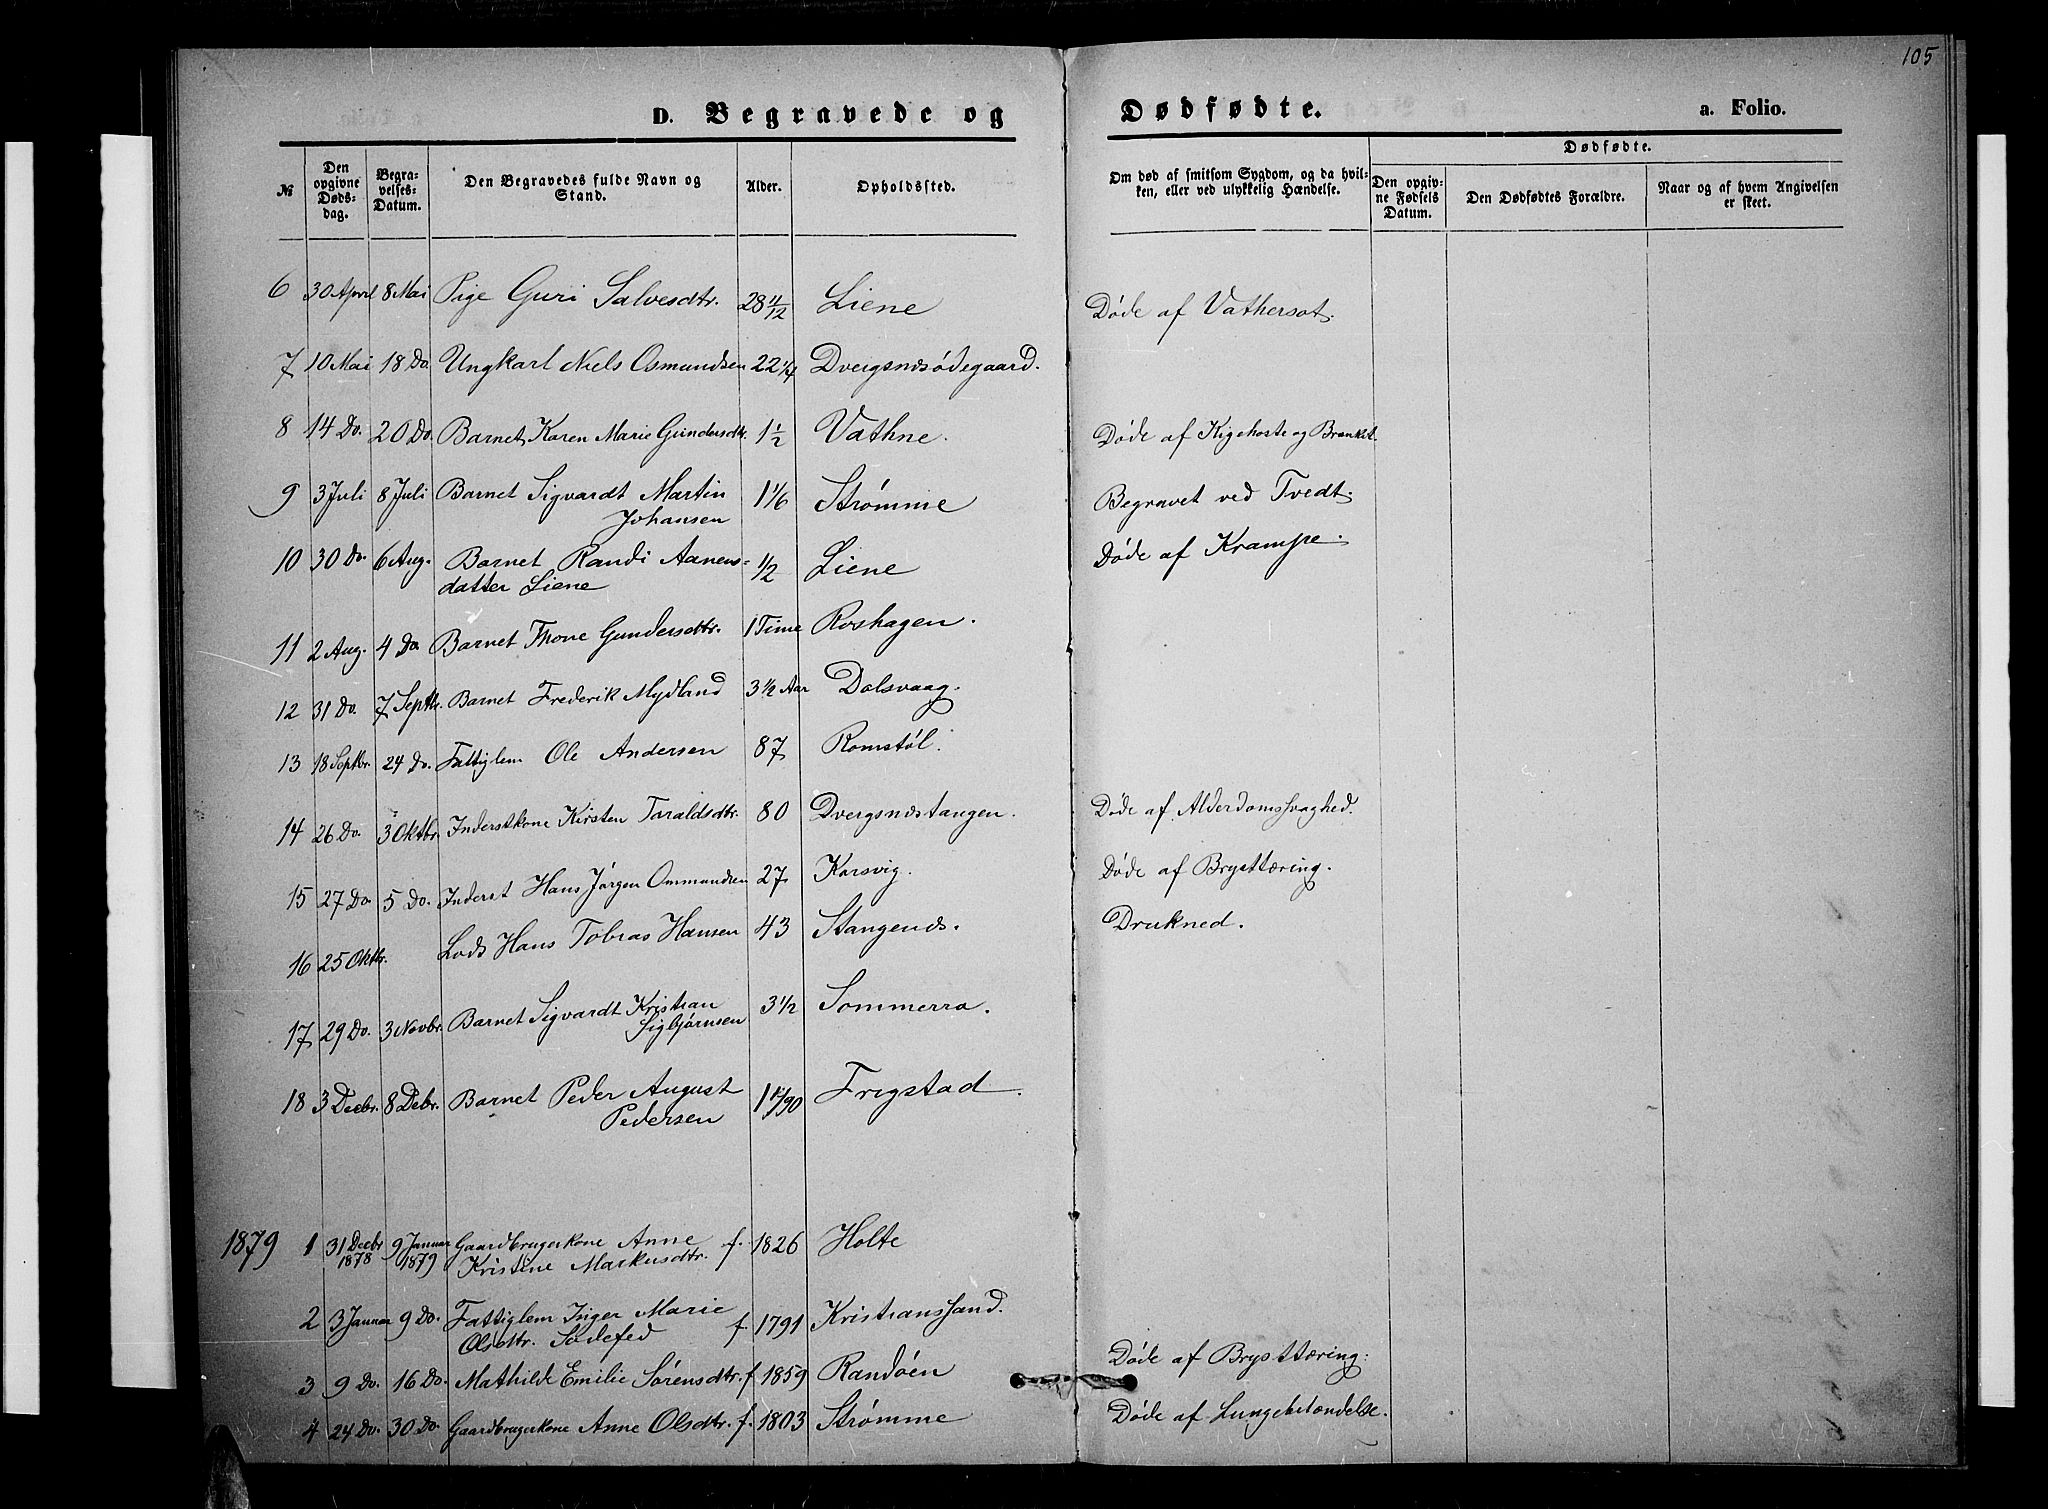 105
D. Begravede og Dødfødte. a. Folio.
№
Den opgivne Døds-dag.
Begra-velses-Datum.
Den Begravedes fulde Navn og Stand.
Alder.
Opholdssted.
Om død af smitsom Sygdom, og da hvil-ken, eller ved ulykkelig Hændelse.
Dødfødte.
Den opgiv-ne Fødsels Datum.
Den Dødfødtes Forældre.
Naar og af hvem Angivelsen er skeet.
6 30 April 8 Mai Pige Guri Salvesdtr. 28 11/12 Liene Døde af Vathersot.
7 10 Mai 18 Do. Ungkarl Niels Osmundsen 22 1/4 Dvergsnesødegaard.
8 14 Do. 20 Do. Barnet Karen Marie Gundersdtr. 1 1/2 Vathne. Døde af Kigehoste og Bronkit.
9 3 Juli 8 Juli Barnet Sigvardt Martin 1 1/6 Strømme Begravet ved Tvedt.
Johansen
10 30 Do. 6 Aug. Barnet Randi Aanens= 1/2 Liene Døde af Krampe.
datter Liene
11 2 Aug. 4 Do. Barnet Thone Gundersdtr. 1 Time Roshagen.
12 31 Do. 7 Septbr. Barnet Frederik Mydland 3 1/2 Aar Dolsvaag.
13 18 Septbr. 24 Do. Fattiglem Ole Andersen 87 Romstøl.
14 26 Do. 3 Oktbr. Inderstkone Kirsten Taraldsdtr. 80 Dvergsnestangen. Døde af Alderdomssvaghed.
15 27 Do. 5 Do. Inderst Hans Jørgen Ommundsen 27 Korsvig. Døde af Brysttæring.
16 25 Oktbr. Lods Hans Tobias Hansen 43 Stangenes. Drukned.
17 29 Do. 3 Novbr. Barnet Sigvardt Kristian 3 1/2 Sommerro.
Sigbjørnsen
18 3 Decbr. 8 Debr. Barnet Peder August 1 Frigstad.
Pedersen
1879 1 31 Decbr 1878 9 Januar 1879 Gaardbrugerkone Anne f. 1826 Holte
Kristine Markusdtr.
2 3 Januar 9 Do. Fattiglem Inger Marie f. 1791 Kristianssand.
Olsdtr.
3 9 Do. 16 Do. Mathilde Emilie Sørensdtr. f 1859 Randøen Døde af Brysttæring.
4 24 Do. 30 Do. Gaardbrugerkone Anne Olsdtr. f. 1803 Strømme Døde af Lungebetændelse.